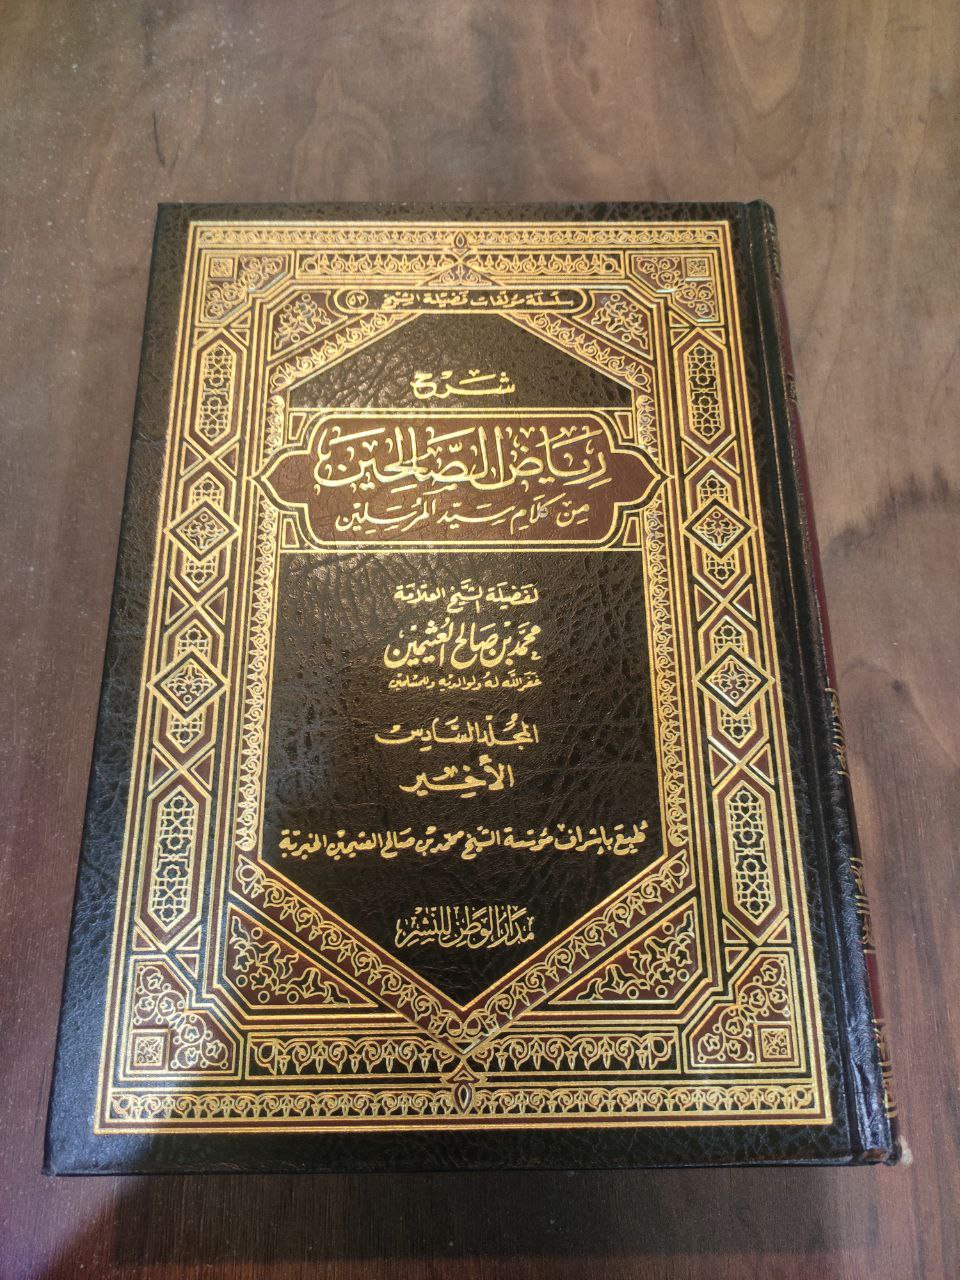 سلسلة مؤلفات فضيلة الشيخ ٥٣
شرح
رياض الصالحين
من كلام سيد المرسلين
لفضيلة الشيخ العلامة
محمد بن صالح العثيمين
غفر الله له ولوالديه وللمسلمين
المجلد السادس
الأخير
طبع بإشراف مؤسسة الشيخ محمد بن صالح العثيمين الخيرية
مدار الوطن للنشر